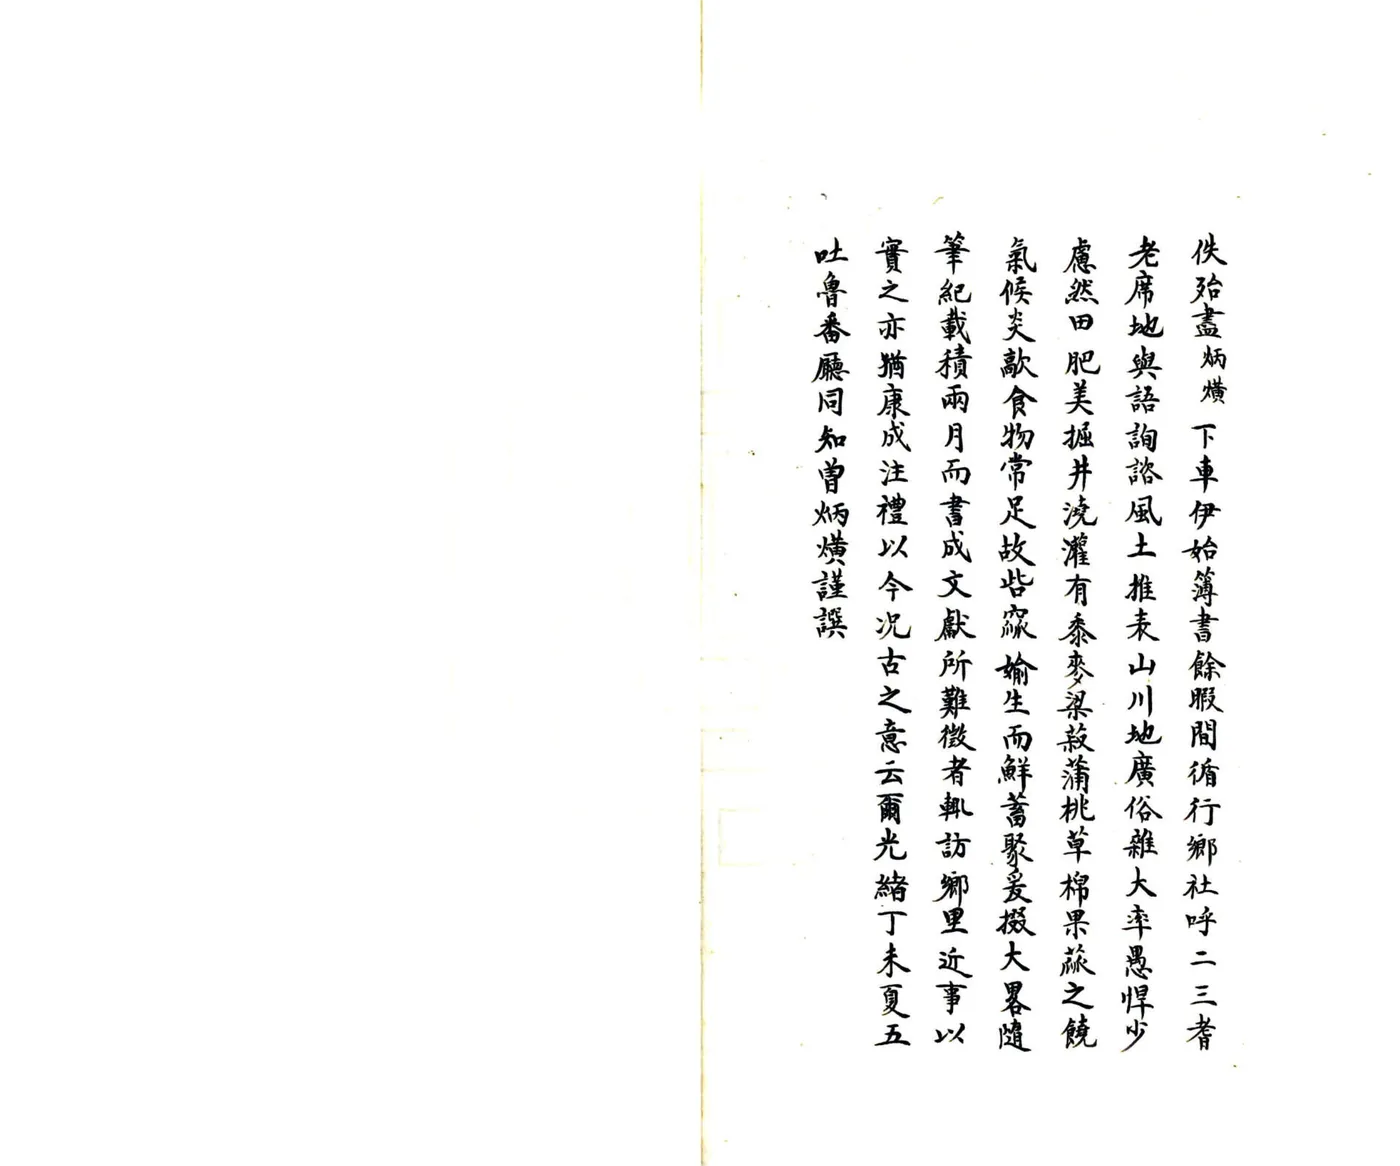 佚殆盡炳熿下車伊始簿書餘暇間循行鄉社呼二三耆
老席地與語詢諮風土推表山川地廣俗雜大率愚悍少
慮然田肥美掘井澆灌有黍麥粱菽蒲桃草棉果蓏之饒
氣候炎歊食物常足故呰窳媮生而鮮蓄聚爰掇大畧隨
筆紀載積兩月而書成文獻所難徵者輒訪鄉里近事以
實之亦猶康成注禮以今况古之意云爾光緒丁未夏五
吐魯番廳同知曾炳熿謹譔